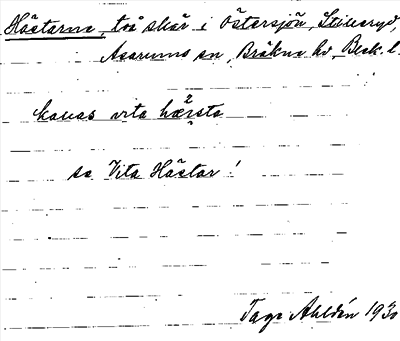 Hästarna, två skär i Östersjön, Stilleryd,
Asarums sn, Bräkne hd, Blek. l.
kallas vita hæsta
se Vita Hästar!
Tage Ahldén 1930